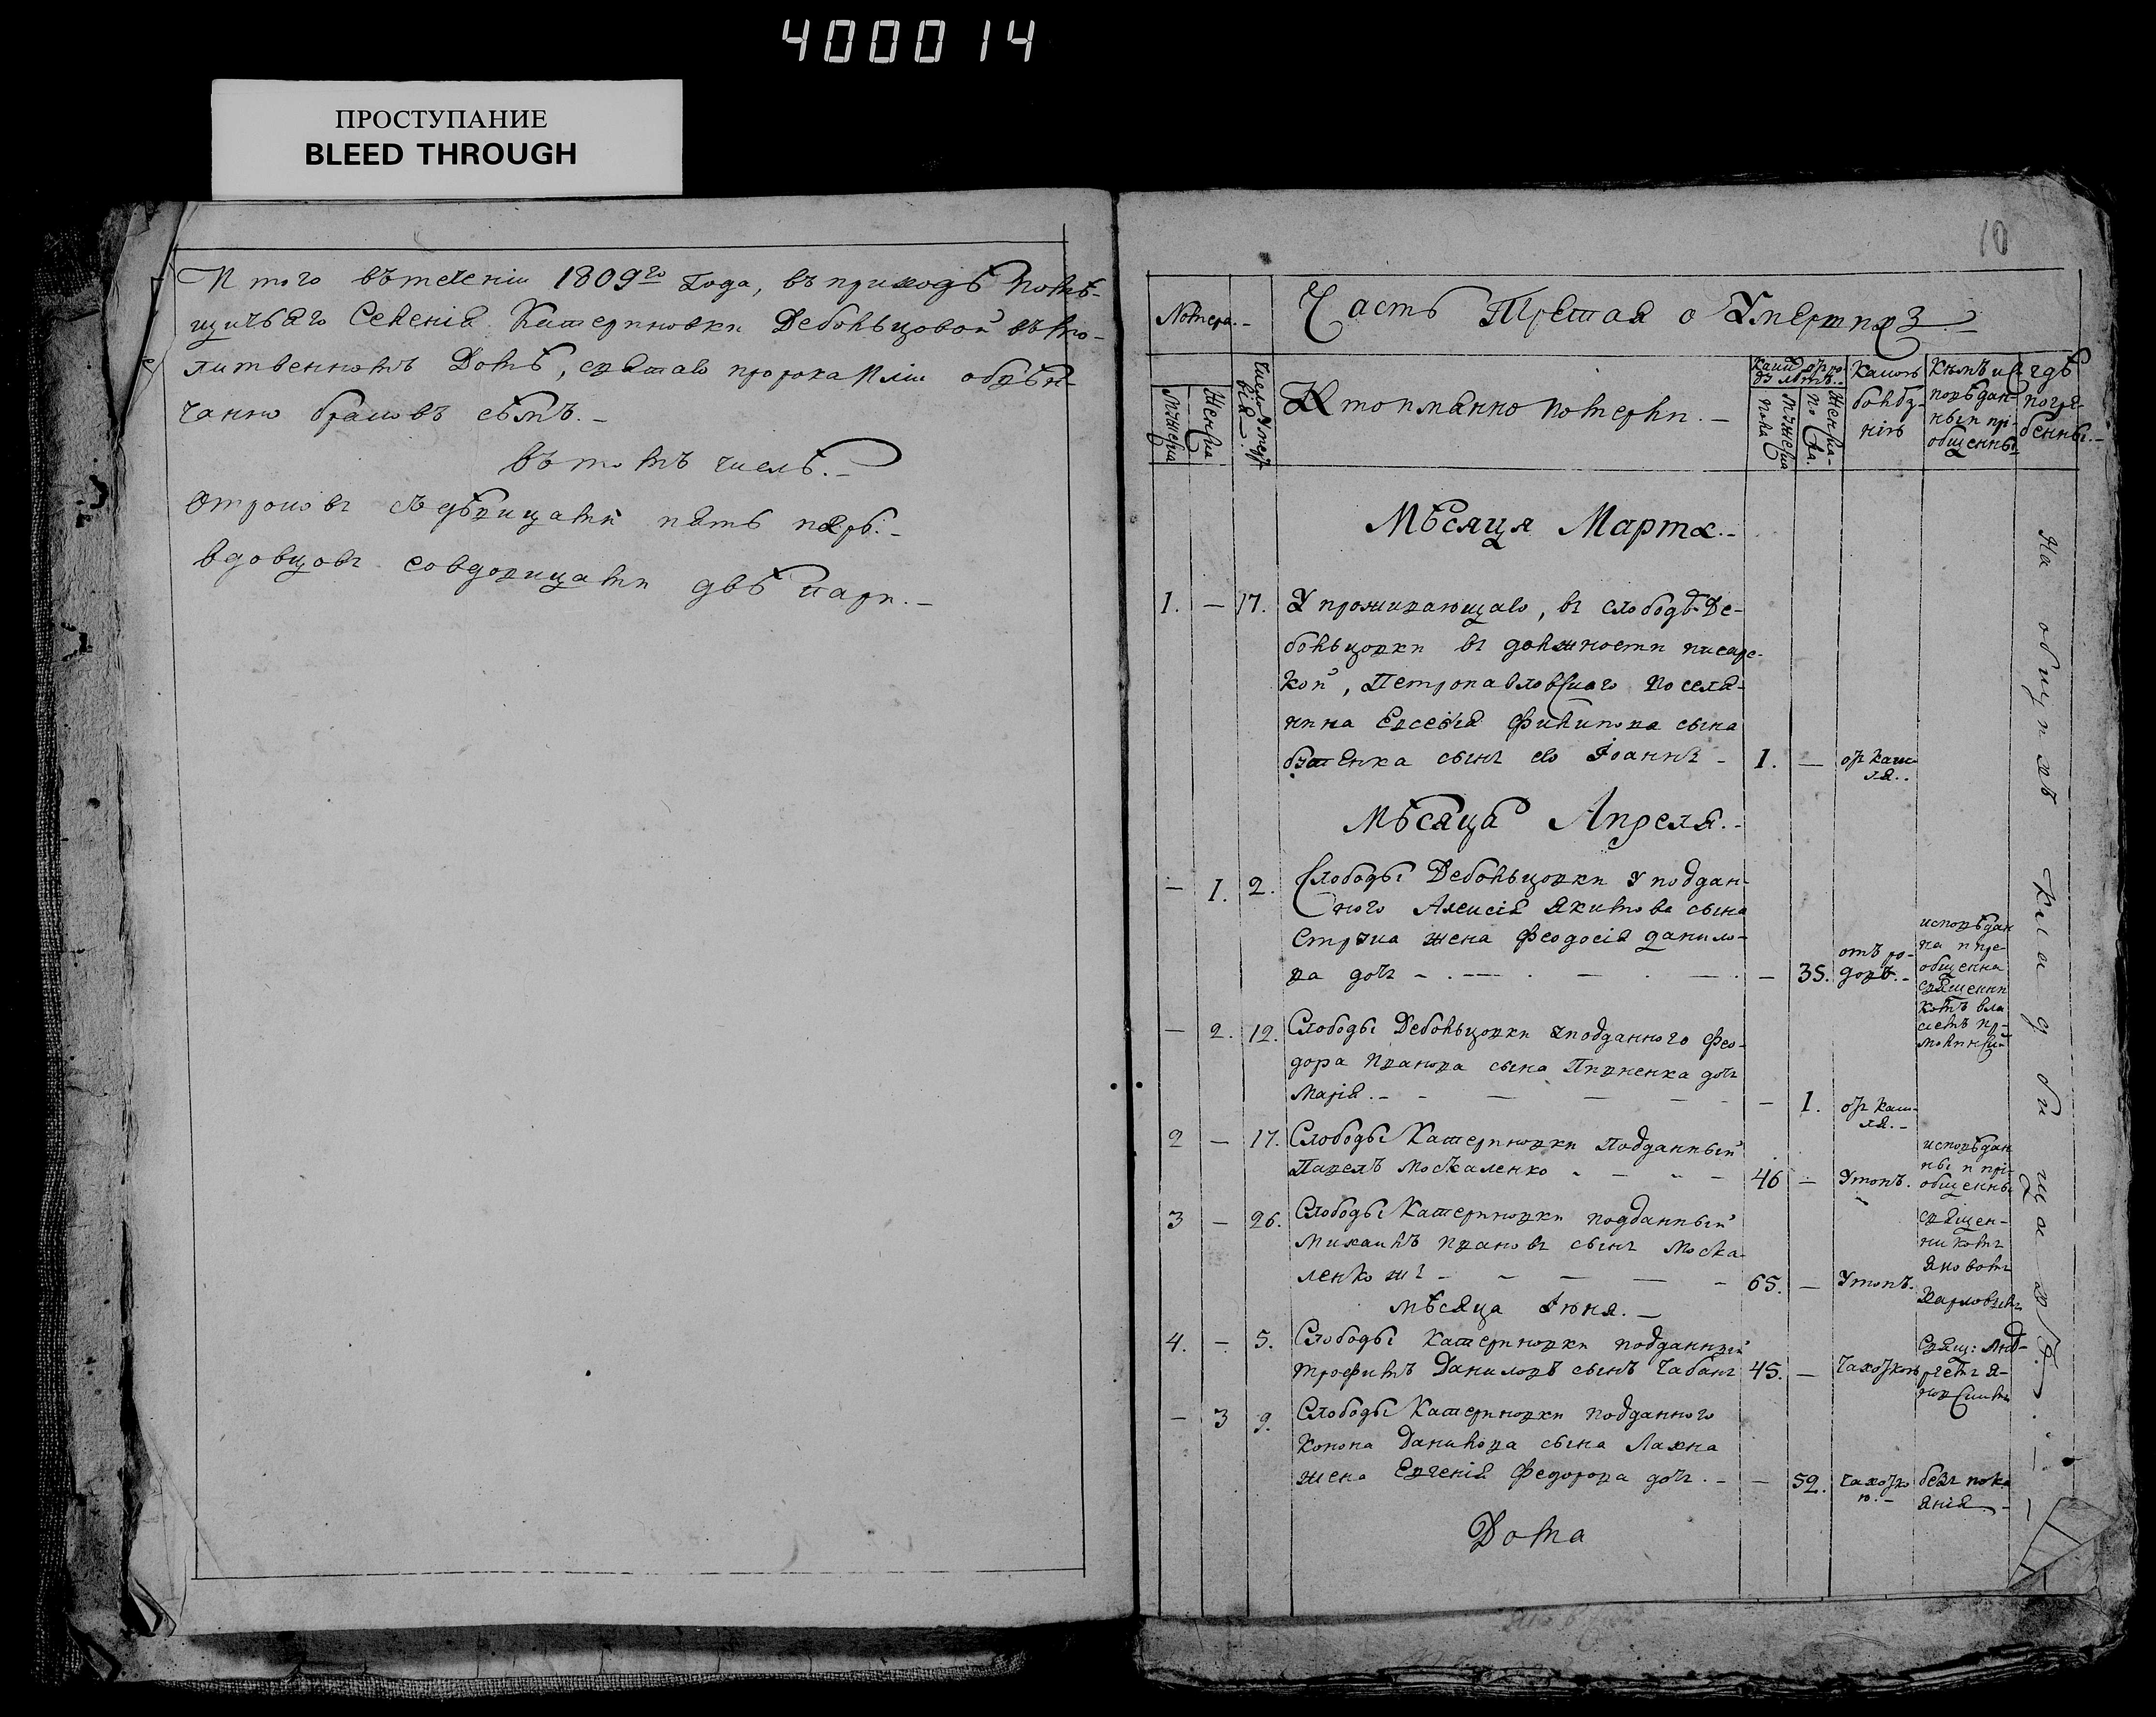 400014
ПРОСТУПАНИЕ
BLEED THROUGH
Итого въ теченіи 1809го Года, въ приходѣ помѣ-
щичьяго Селенія Катериновки Дебольцовой въ мо-
литвенномъ Домѣ, святаго пророка Иліи обвѣн-
чанно браковъ семъ.-
въ томъ числѣ.-
Отроковъ съ дѣвицами пять паръ.-
вдовцовъ со вдовицами двѣ пари.-
10
Номера.-
Часть Третая о Умершихъ.-
мужеска
Женска
Число умертвія.
Кто именно померли.-
Какихъ отъ роду лѣтъ.-
мужеска пола
Женска пола.
Какою
болѣз-
нію
Кѣмъ исповѣдан-
ны и прі-
общенны
гдѣ
погре-
бенны.-
Мѣсяца Марта.-
1. — 17. У проживающаго, въ слободѣ Де-
больцовки въ должности писарс-
кой, Петропавловскаго поселя-
нина Евсевія Филипова сына
сынъ его Іоаннъ - 1. — отъ каш-
ля..
Мѣсяца Апреля.-
— 1. 2. Слободы Дебольцовки у поддан-
ного Алексія Якимова сына
жена Феодосія Данило-
ва дочь — 35. отъ ро-
довъ.-
исповѣдан
на и пре-
общенна
священни
комъ
— 2. 12. Слободы Дебольцовки у подданного Фео-
дора Иванова сына Пивненка дочь
Марія.- — 1. отъ каш-
ля.-
2 — 17. Слободы Катериновки Подданный
Павелъ Москаленко - 46 — Утопъ.
исповѣдан
ны и прі-
общенны
3 — 26. Слободы Катериновки подданный
Михаилъ Ивановъ сынъ Моска-
ленко жъ - 65. — Утопъ.
священ-
никомъ
Яковомъ
мѣсяца Іюня.-
4. — 5. Слободы Катериновки подданный
Трофимъ Даниловъ сынъ Чабанъ 45. — Чахоткою
Свящ: Анд-
реемъ
— 3 9. Слободы Катериновки подданного
Конона Данилова сына Лахна
жена Евгенія Федорова дочь.- — 52. чахотко
ю.-
безъ пока
янія.-
На общихъ кладбищахъ.
Дома